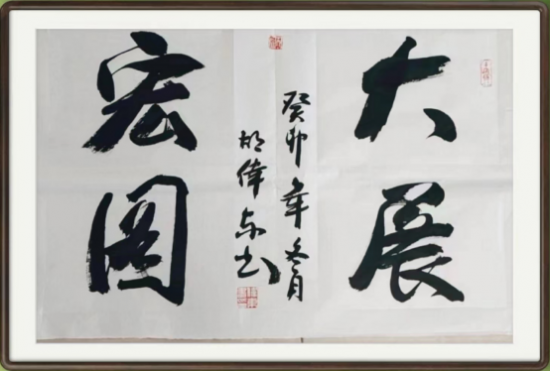 大展
宏图
癸卯年冬月
胡偉东书